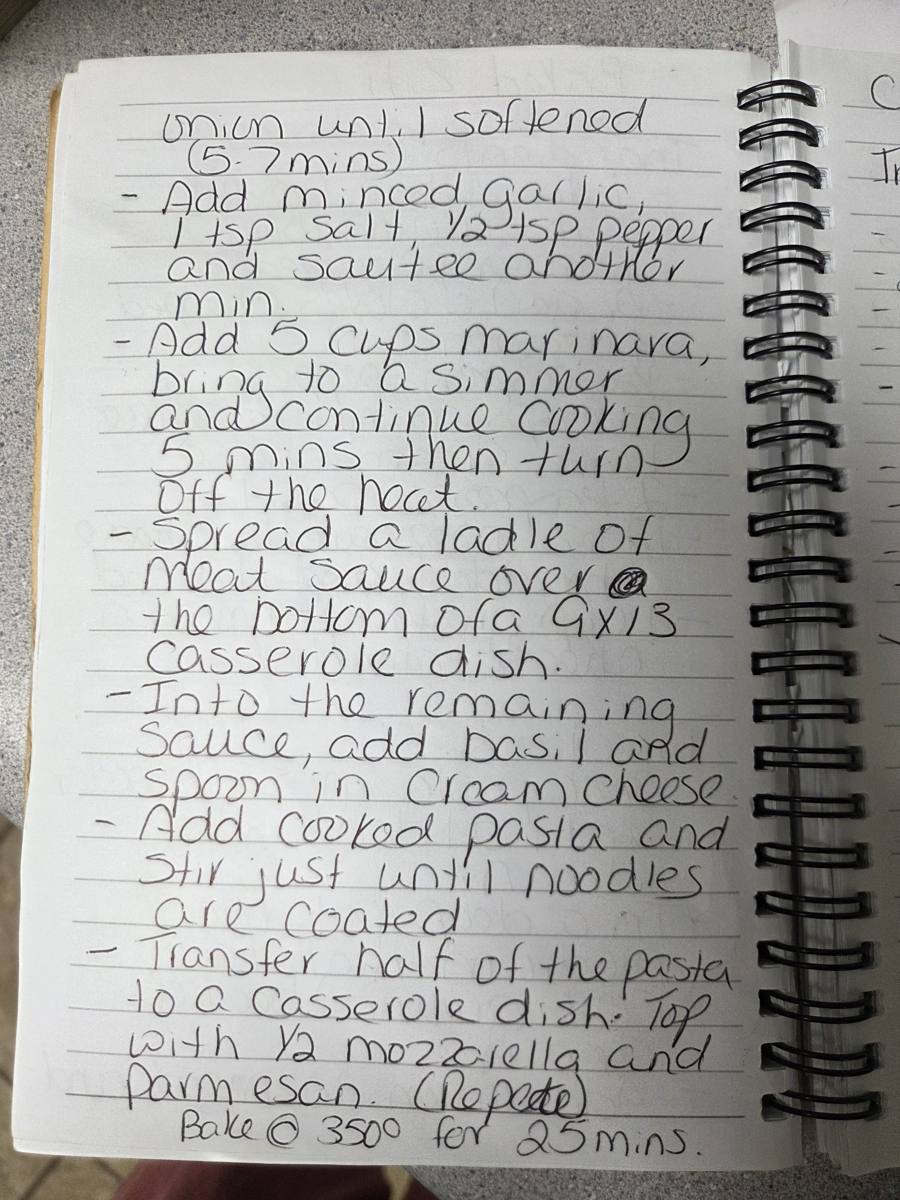 onion until softened
(5-7mins)
- Add minced garlic,
1 tsp salt, 1/2 tsp pepper
and sautee another
min.
- Add 5 cups marinara,
bring to a simmer
and continue cooking
5 mins then turn
off the heat.
- Spread a ladle of
meat sauce over
the bottom of a 9x13
casserole dish.
- Into the remaining
sauce, add basil and
spoon in cream cheese.
- Add cooked pasta and
stir just until noodles
are coated
- Transfer half of the pasta
to a casserole dish. Top
with 1/2 mozzarella and
parmesan. (Repeate)
Bake @ 350° for 25mins.
C
In
-
-
-
-
-
-
-